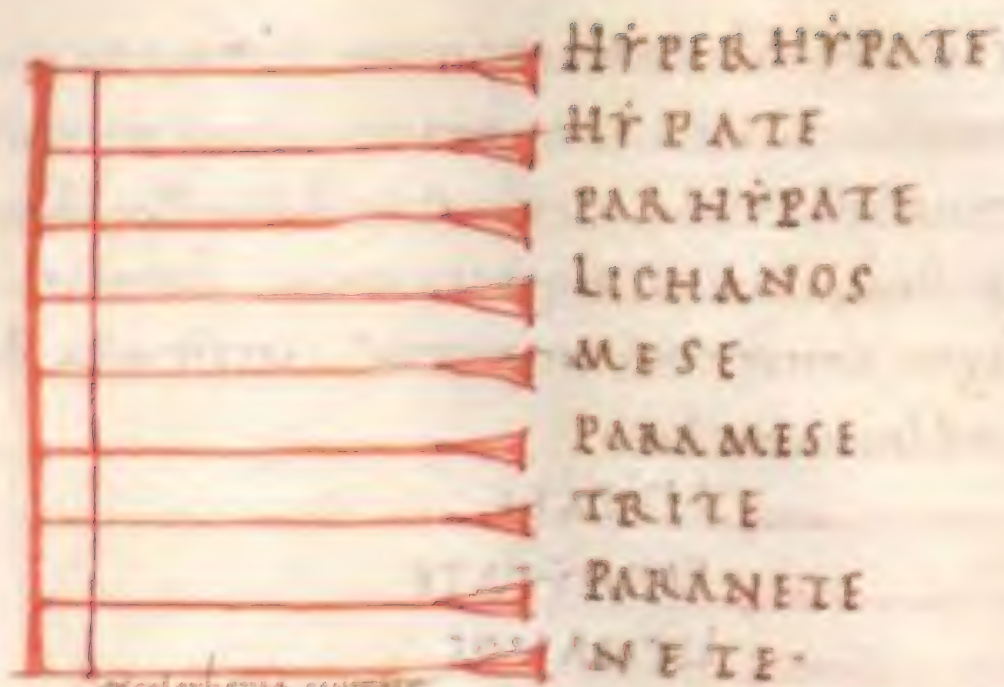 HẎPERHẎPATE
HẎPATE
PARHẎPATE
LICHANOS
MESE
PARAMESE
TRITE
PARANETE
NETE·